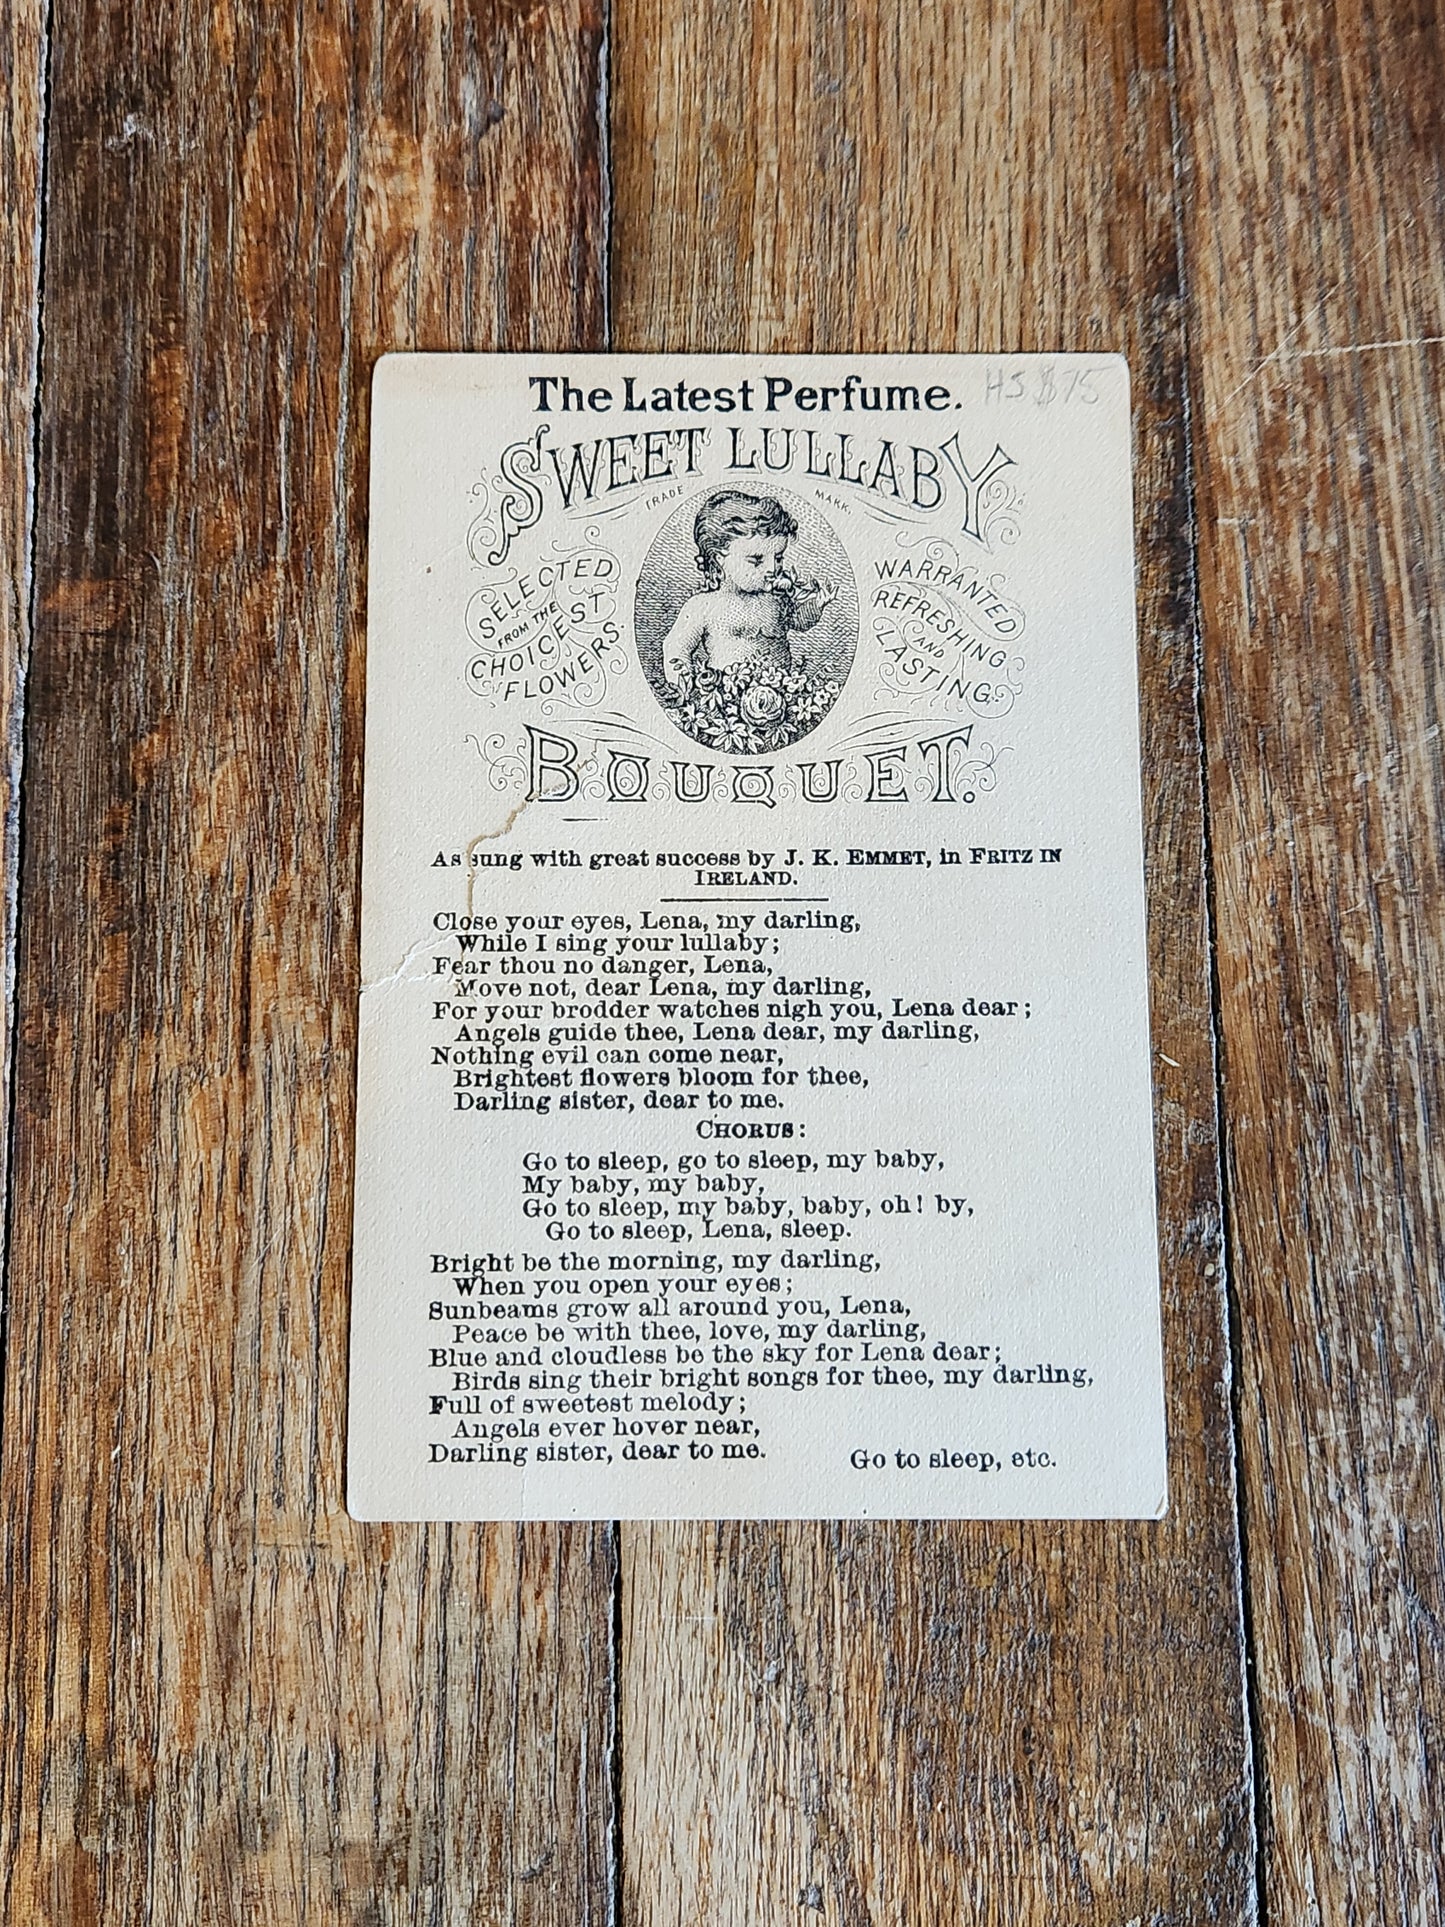 The Latest Perfume.
HS $75
SWEET LULLABY
TRADE MARK.
SELECTED
FROM THE
CHOICEST
FLOWERS.
WARRANTED
REFRESHING
AND
LASTING
BOUQUET.
As sung with great success by J. K. EMMET, in FRITZ IN
IRELAND.
Close your eyes, Lena, my darling,
While I sing your lullaby;
Fear thou no danger, Lena,
Move not, dear Lena, my darling,
For your brodder watches nigh you, Lena dear;
Angels guide thee, Lena dear, my darling,
Nothing evil can come near,
Brightest flowers bloom for thee,
Darling sister, dear to me.
CHORUS:
Go to sleep, go to sleep, my baby,
My baby, my baby,
Go to sleep, my baby, baby, oh! by,
Go to sleep, Lena, sleep.
Bright be the morning, my darling,
When you open your eyes;
Sunbeams grow all around you, Lena,
Peace be with thee, love, my darling,
Blue and cloudless be the sky for Lena dear;
Birds sing their bright songs for thee, my darling,
Full of sweetest melody;
Angels ever hover near,
Darling sister, dear to me.
Go to sleep, etc.